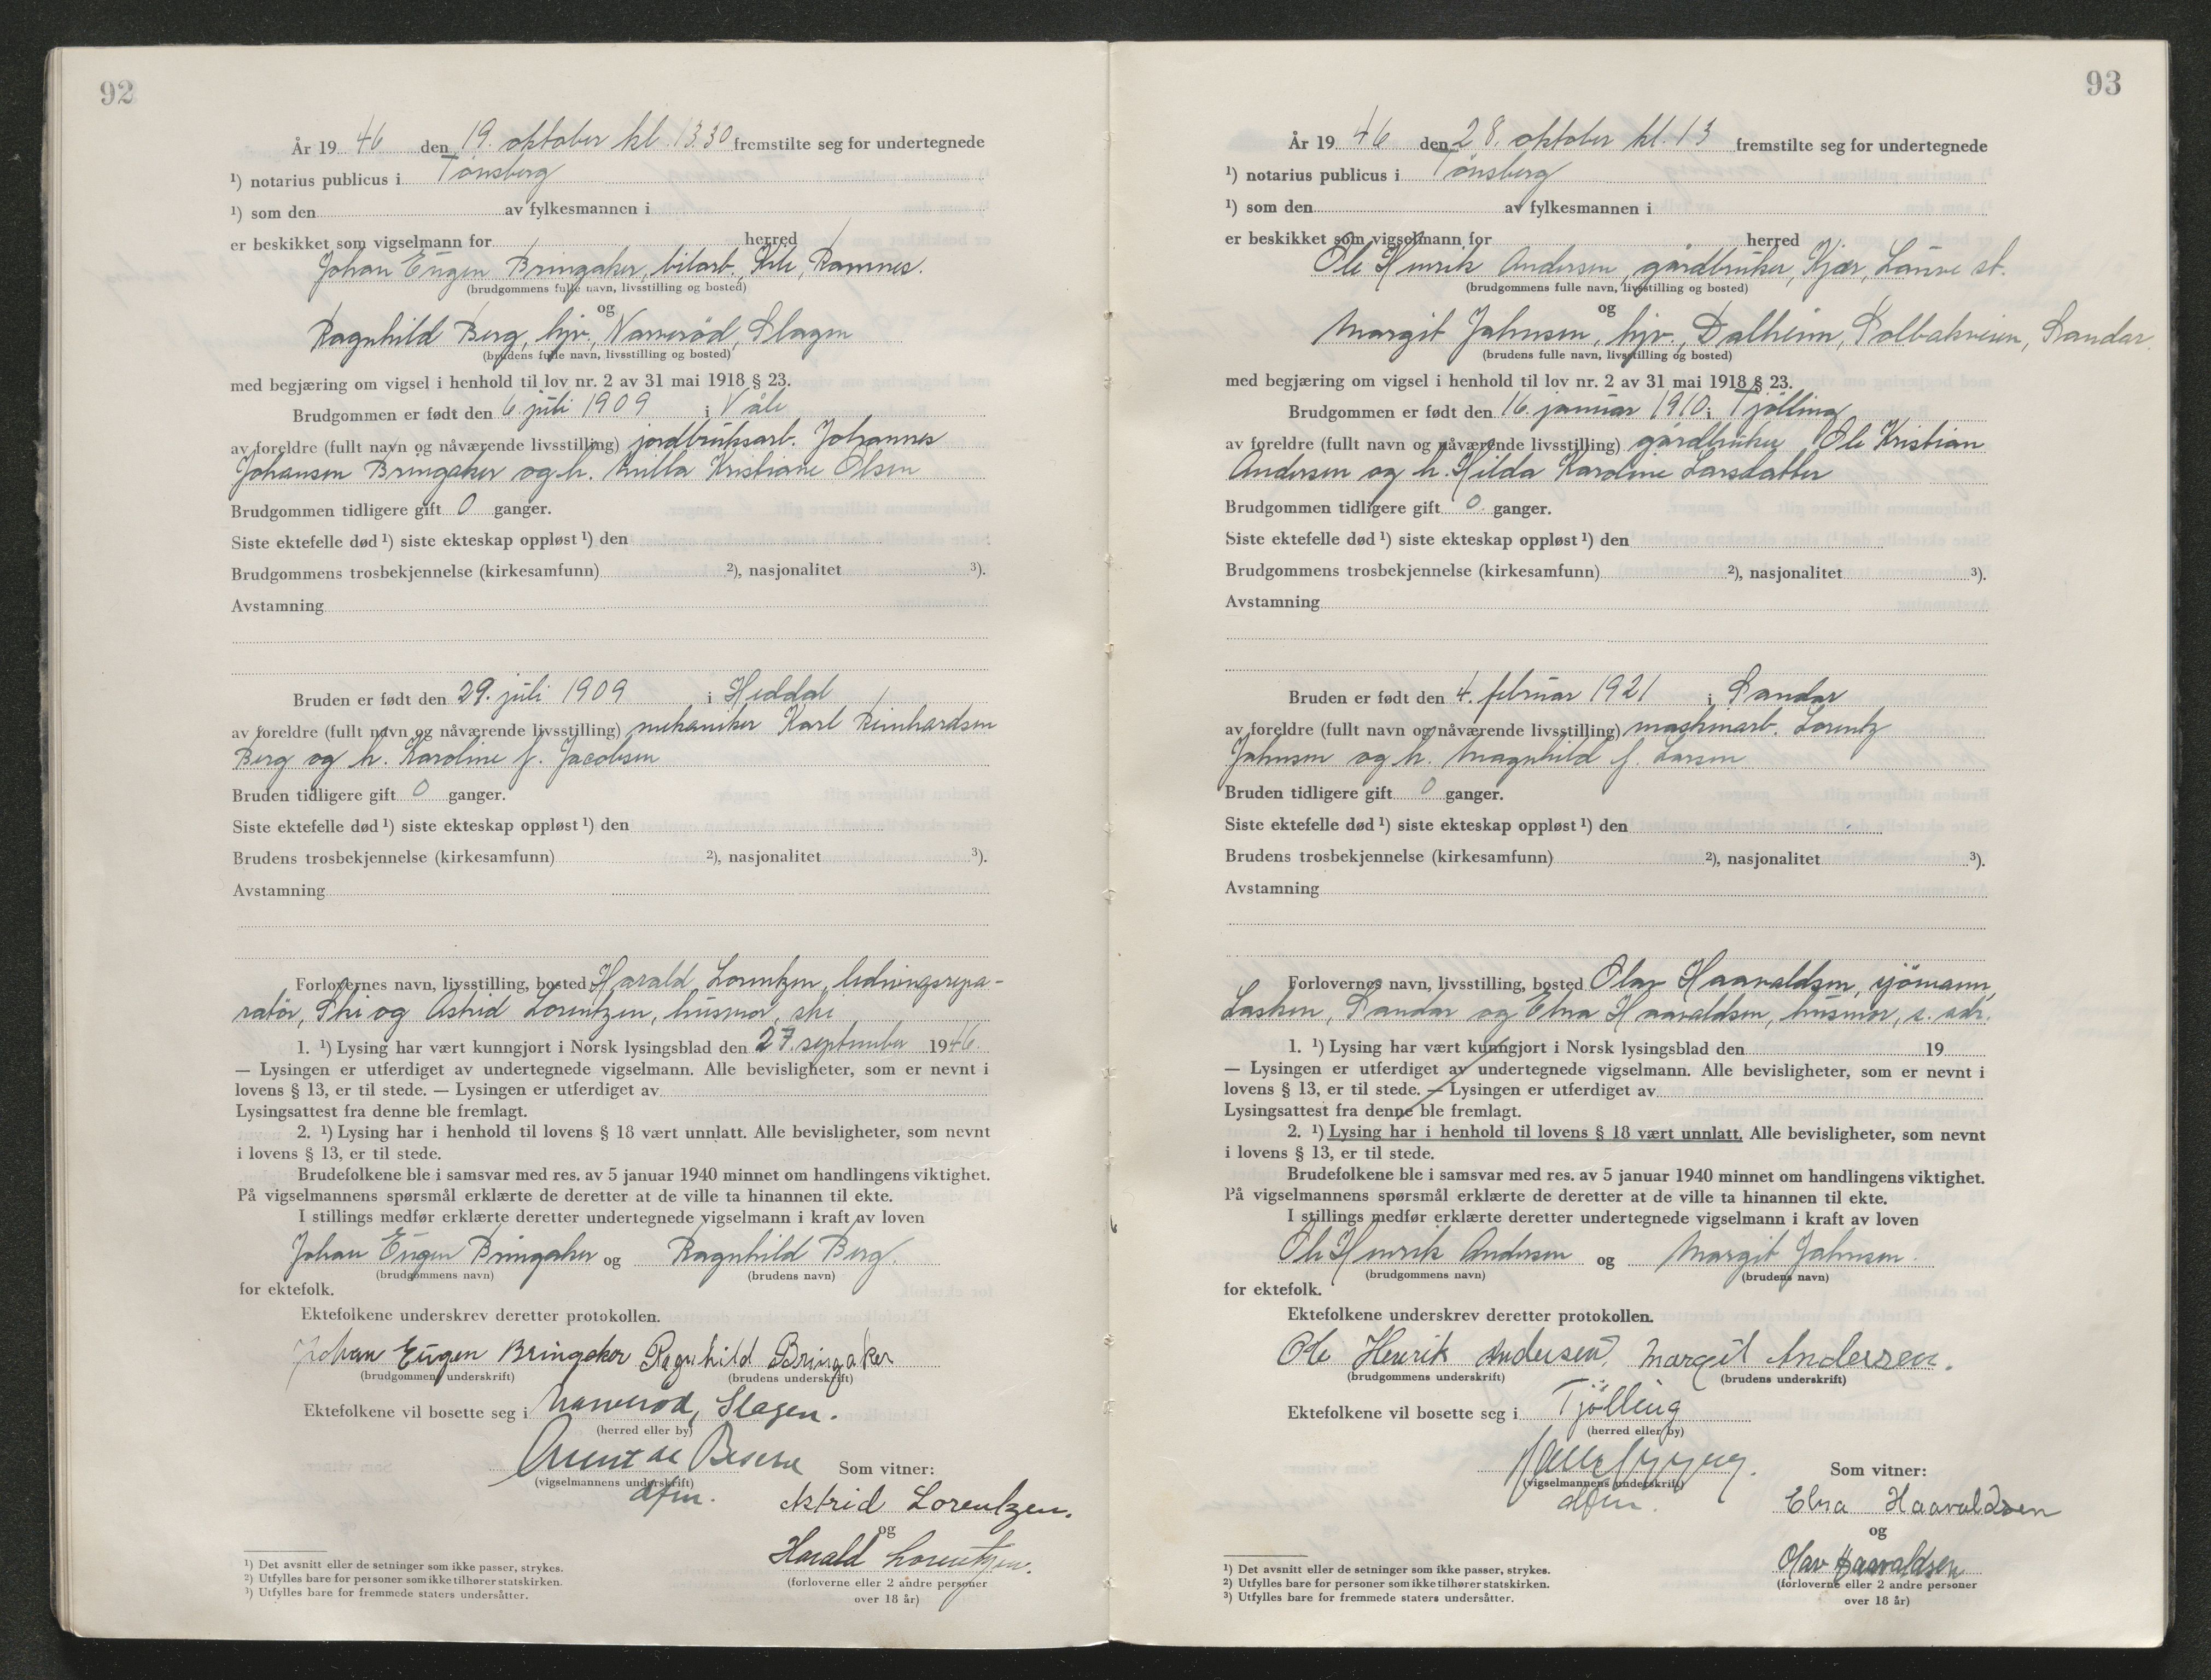 92
År 19 46 den 19. oktober kl. 13.30 fremstilte seg for undertegnede
¹) notarius publicus i Tönsberg
¹) som den av fylkesmannen i
er beskikket som vigselmann for herred
Johan Eugen Bringaker, bilarb., Ramnes.
(brudgommens fulle navn, livsstilling og bosted)
og
Ragnhild Berg, hjv., Narverød, Slagen
(brudens fulle navn, livsstilling og bosted)
med begjæring om vigsel i henhold til lov nr. 2 av 31 mai 1918 § 23.
Brudgommen er født den 6. juli 1909 i Våle
av foreldre (fullt navn og nåværende livsstilling) jordbruksarb. Johannes
Johansen Bringaker og h. Milla Kristiane Olsen
Brudgommen tidligere gift 0 ganger.
Siste ektefelle død ¹) siste ekteskap oppløst ¹) den
Brudgommens trosbekjennelse (kirkesamfunn) ²), nasjonalitet ³).
Avstamning
Bruden er født den 29. juli 1909 i Heddal
av foreldre (fullt navn og nåværende livsstilling) mekaniker Karl Reinhardsen
Berg og h. Karoline f. Jacobsen
Bruden tidligere gift 0 ganger.
Siste ektefelle død ¹) siste ekteskap oppløst ¹) den
Brudens trosbekjennelse (kirkesamfunn) ²), nasjonalitet ³).
Avstamning
Forlovernes navn, livsstilling, bosted Harald Lorentzen, ledningsrepa-
ratör, Ski og Astrid Lorentzen, husmor, Ski
1. ¹) Lysing har vært kunngjort i Norsk lysingsblad den 27. september 1946.
— Lysingen er utferdiget av undertegnede vigselmann. Alle bevisligheter, som er nevnt i
lovens § 13, er til stede. — Lysingen er utferdiget av
Lysingsattest fra denne ble fremlagt.
2. ¹) Lysing har i henhold til lovens § 18 vært unnlatt. Alle bevisligheter, som nevnt
i lovens § 13, er til stede.
Brudefolkene ble i samsvar med res. av 5 januar 1940 minnet om handlingens viktighet.
På vigselmannens spørsmål erklærte de deretter at de ville ta hinannen til ekte.
I stillings medfør erklærte deretter undertegnede vigselmann i kraft av loven
Johan Eugen Bringaker og Ragnhild Berg.
(brudgommens navn) (brudens navn)
for ektefolk.
Ektefolkene underskrev deretter protokollen.
Johan Eugen Bringaker Ragnhild Bringaker
(brudgommens underskrift) (brudens underskrift)
Ektefolkene vil bosette seg i Narverød, Slagen.
(herred eller by)
Som vitner:
(vigselmannens underskrift)
dfm.
Astrid Lorentzen.
og
Harald Lorentzen.
(forloverne eller 2 andre personer
over 18 år)
¹) Det avsnitt eller de setninger som ikke passer, strykes.
²) Utfylles bare for personer som ikke tilhører statskirken.
³) Utfylles bare for fremmede staters undersåtter.
93
År 19 46 den 28. oktober kl. 13 fremstilte seg for undertegnede
¹) notarius publicus i Tönsberg
¹) som den av fylkesmannen i
er beskikket som vigselmann for herred
Ole Henrik Andersen, gårdbruker, Kjær, Lauve st.
(brudgommens fulle navn, livsstilling og bosted)
og
Margit Jahnsen, hjv., Dalheim, Solbakveien, Sandar
(brudens fulle navn, livsstilling og bosted)
med begjæring om vigsel i henhold til lov nr. 2 av 31 mai 1918 § 23.
Brudgommen er født den 16. januar 1910 i Tjölling
av foreldre (fullt navn og nåværende livsstilling) gårdbruker Ole Kristian
Andersen og h. Hilda Karoline Larsdatter
Brudgommen tidligere gift 0 ganger.
Siste ektefelle død ¹) siste ekteskap oppløst ¹) den
Brudgommens trosbekjennelse (kirkesamfunn) ²), nasjonalitet ³).
Avstamning
Bruden er født den 4. februar 1921 i Sandar
av foreldre (fullt navn og nåværende livsstilling) maskinarb. Lorentz
Jahnsen og h. Magnhild f. Larsen
Bruden tidligere gift 0 ganger.
Siste ektefelle død ¹) siste ekteskap oppløst ¹) den
Brudens trosbekjennelse (kirkesamfunn) ²), nasjonalitet ³).
Avstamning
Forlovernes navn, livsstilling, bosted Olav Haavaldsen, sjömann,
Lasken, Sandar og Elna Haavaldsen, husmor, s. adr.
1. ¹) Lysing har vært kunngjort i Norsk lysingsblad den 19
— Lysingen er utferdiget av undertegnede vigselmann. Alle bevisligheter, som er nevnt i
lovens § 13, er til stede. — Lysingen er utferdiget av
Lysingsattest fra denne ble fremlagt.
2. ¹) Lysing har i henhold til lovens § 18 vært unnlatt. Alle bevisligheter, som nevnt
i lovens § 13, er til stede.
Brudefolkene ble i samsvar med res. av 5 januar 1940 minnet om handlingens viktighet.
På vigselmannens spørsmål erklærte de deretter at de ville ta hinannen til ekte.
I stillings medfør erklærte deretter undertegnede vigselmann i kraft av loven
Ole Henrik Andersen og Margit Jahnsen.
(brudgommens navn) (brudens navn)
for ektefolk.
Ektefolkene underskrev deretter protokollen.
Ole Henrik Andersen. Margit Andersen.
(brudgommens underskrift) (brudens underskrift)
Ektefolkene vil bosette seg i Tjölling
(herred eller by)
Som vitner:
(vigselmannens underskrift)
dfm.
Elna Haavaldsen
og
Olav Haavaldsen
(forloverne eller 2 andre personer
over 18 år)
¹) Det avsnitt eller de setninger som ikke passer, strykes.
²) Utfylles bare for personer som ikke tilhører statskirken.
³) Utfylles bare for fremmede staters undersåtter.